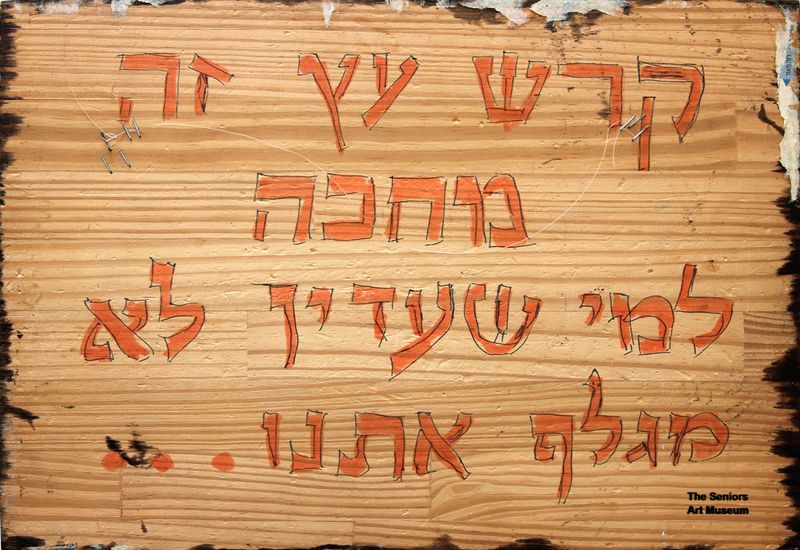 קרש עץ זה
מחכה
למי שעדין לא
מגלף אתנו...
The Seniors
Art Museum